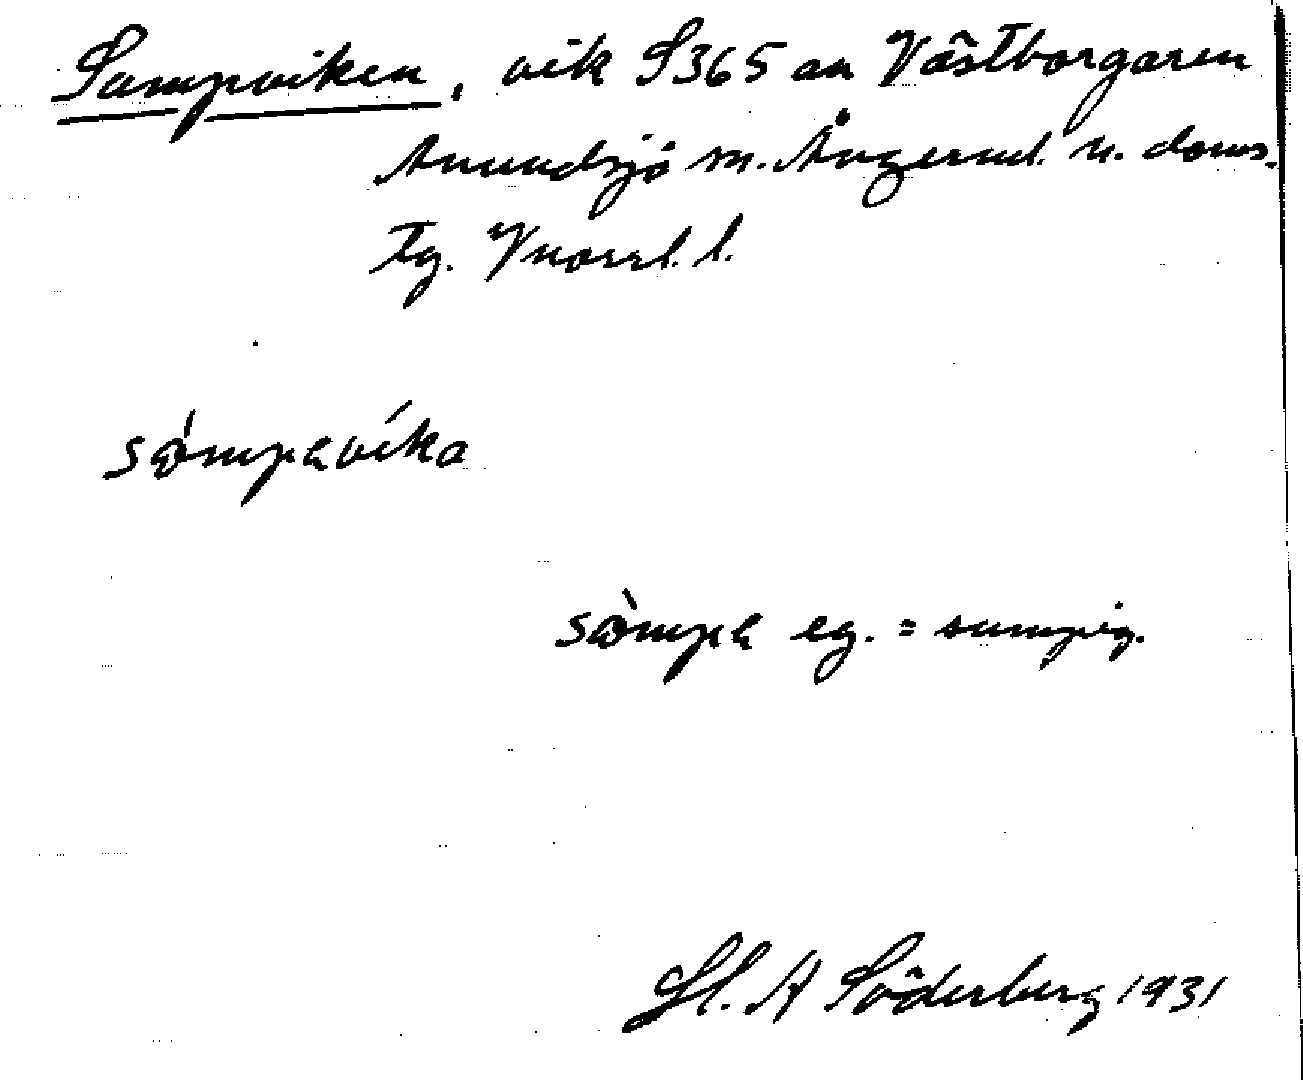 Sumpviken, vik S365 an Västborgaren
Anundsjö sn. Ångerml. n. doms.
tg. Vnorrl. l.
sömpavíka
sömpa eg. = sumpig.
H. A Söderberg 1931